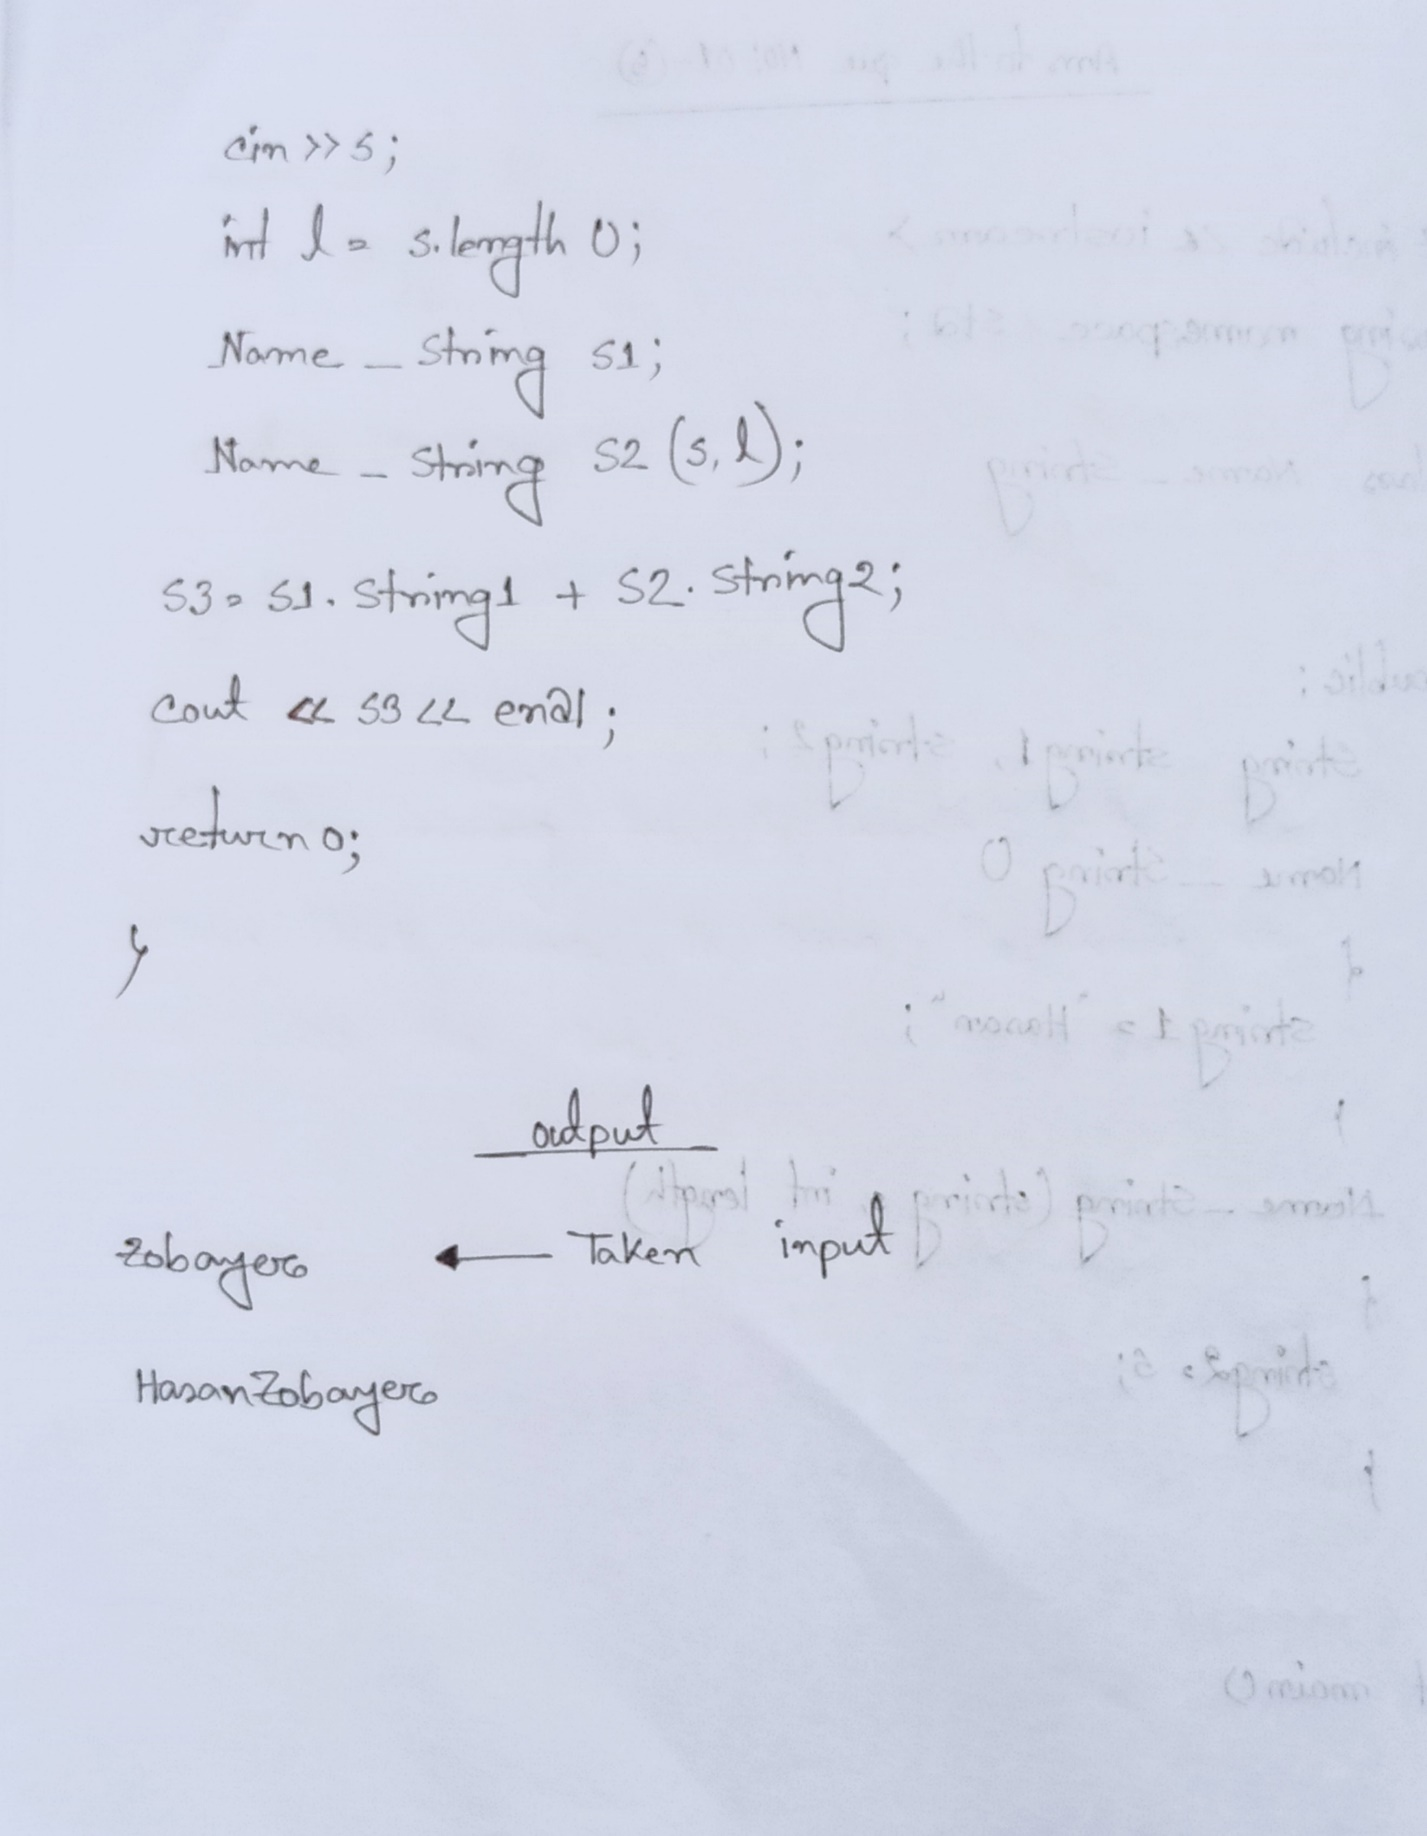 cin >> s;
int l = s.length();
Name_String S1;
Name_String S2 (s, l);
S3 = S1.String1 + S2.String2;
cout << S3 << endl;
return 0;
}
output
Zobayer ← Taken input
HasanZobayer